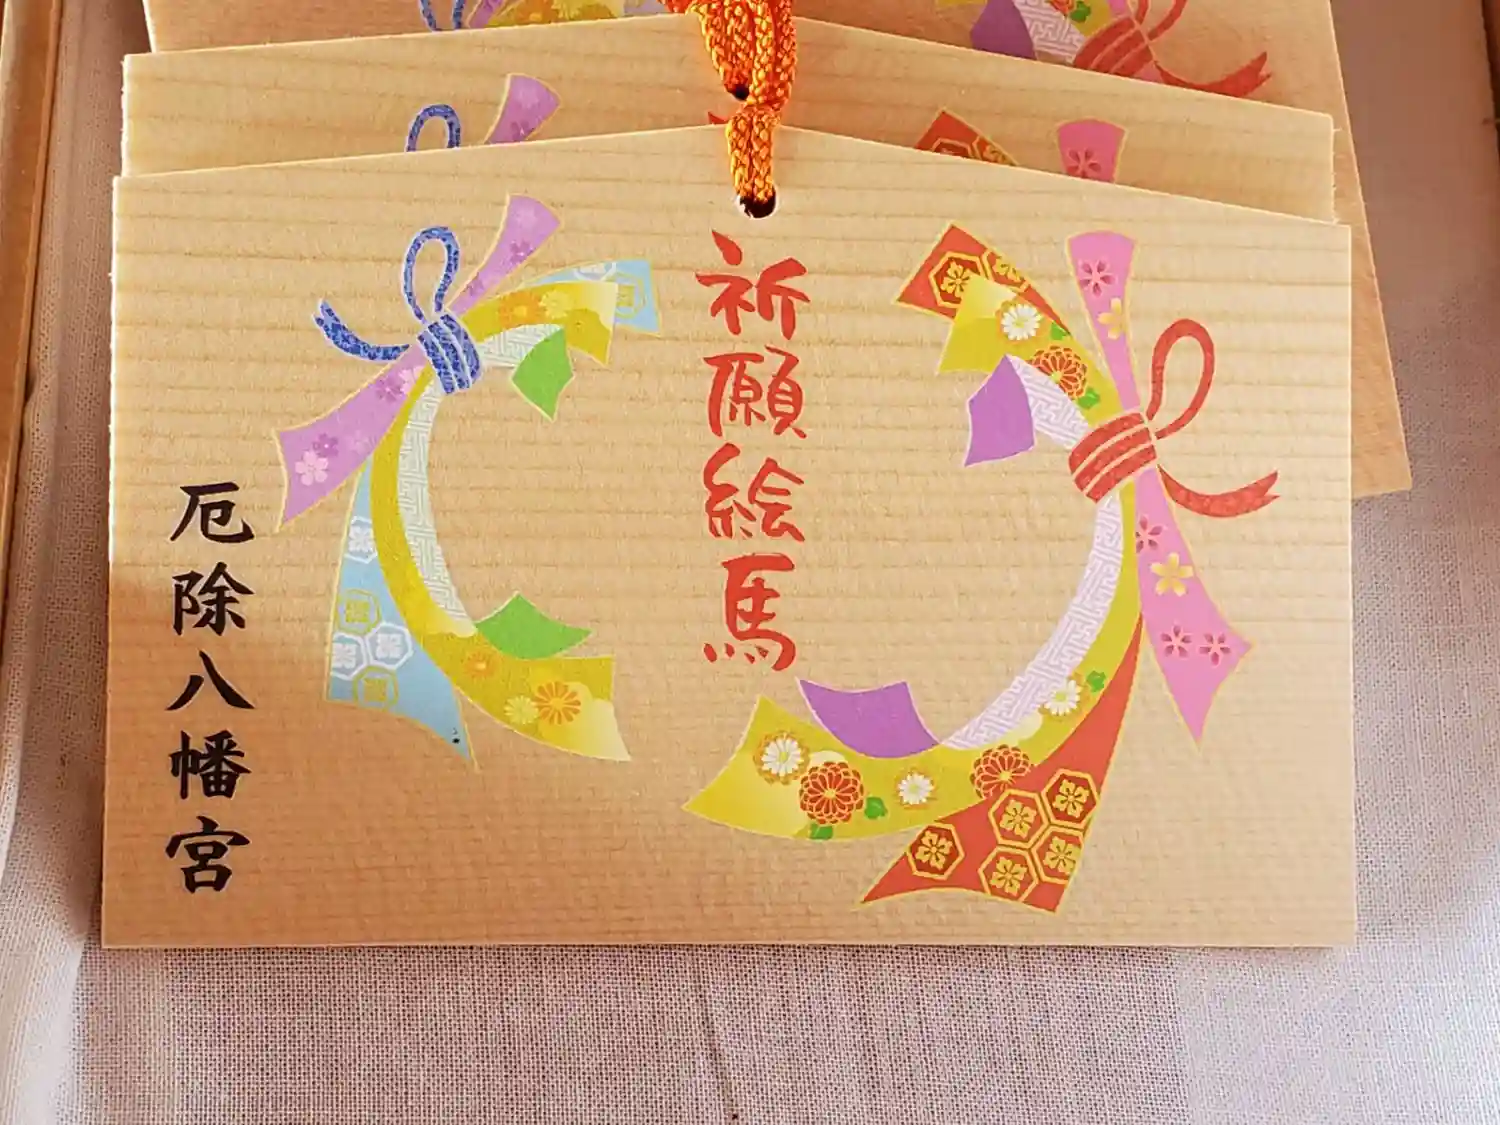 祈願絵馬
厄除八幡宮